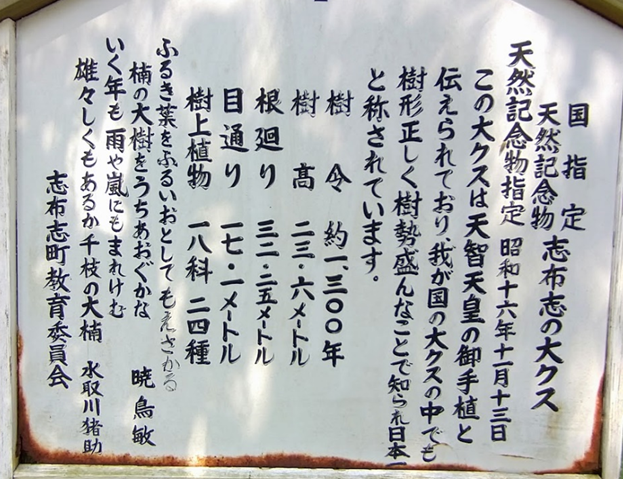 国指定
天然記念物 志布志の大クス
天然記念物指定 昭和十六年十一月十三日
この大クスは天智天皇の御手植と
伝えられており、我が国の大クスの中でも
樹形正しく樹勢盛んなことで知られ日本一
と称されています。
樹令 約一、三〇〇年
樹高 二三・六メートル
根廻り 三二・二五メートル
目通り 一七・一メートル
樹上植物 一八科 二四種
ふるき葉をふるいおとして もえさかる
楠の大樹をうちあおぐかな 暁烏敏
いく年も雨や嵐にもまれけむ
雄々しくもあるか千枝の大楠 水取川猪助
志布志町教育委員会